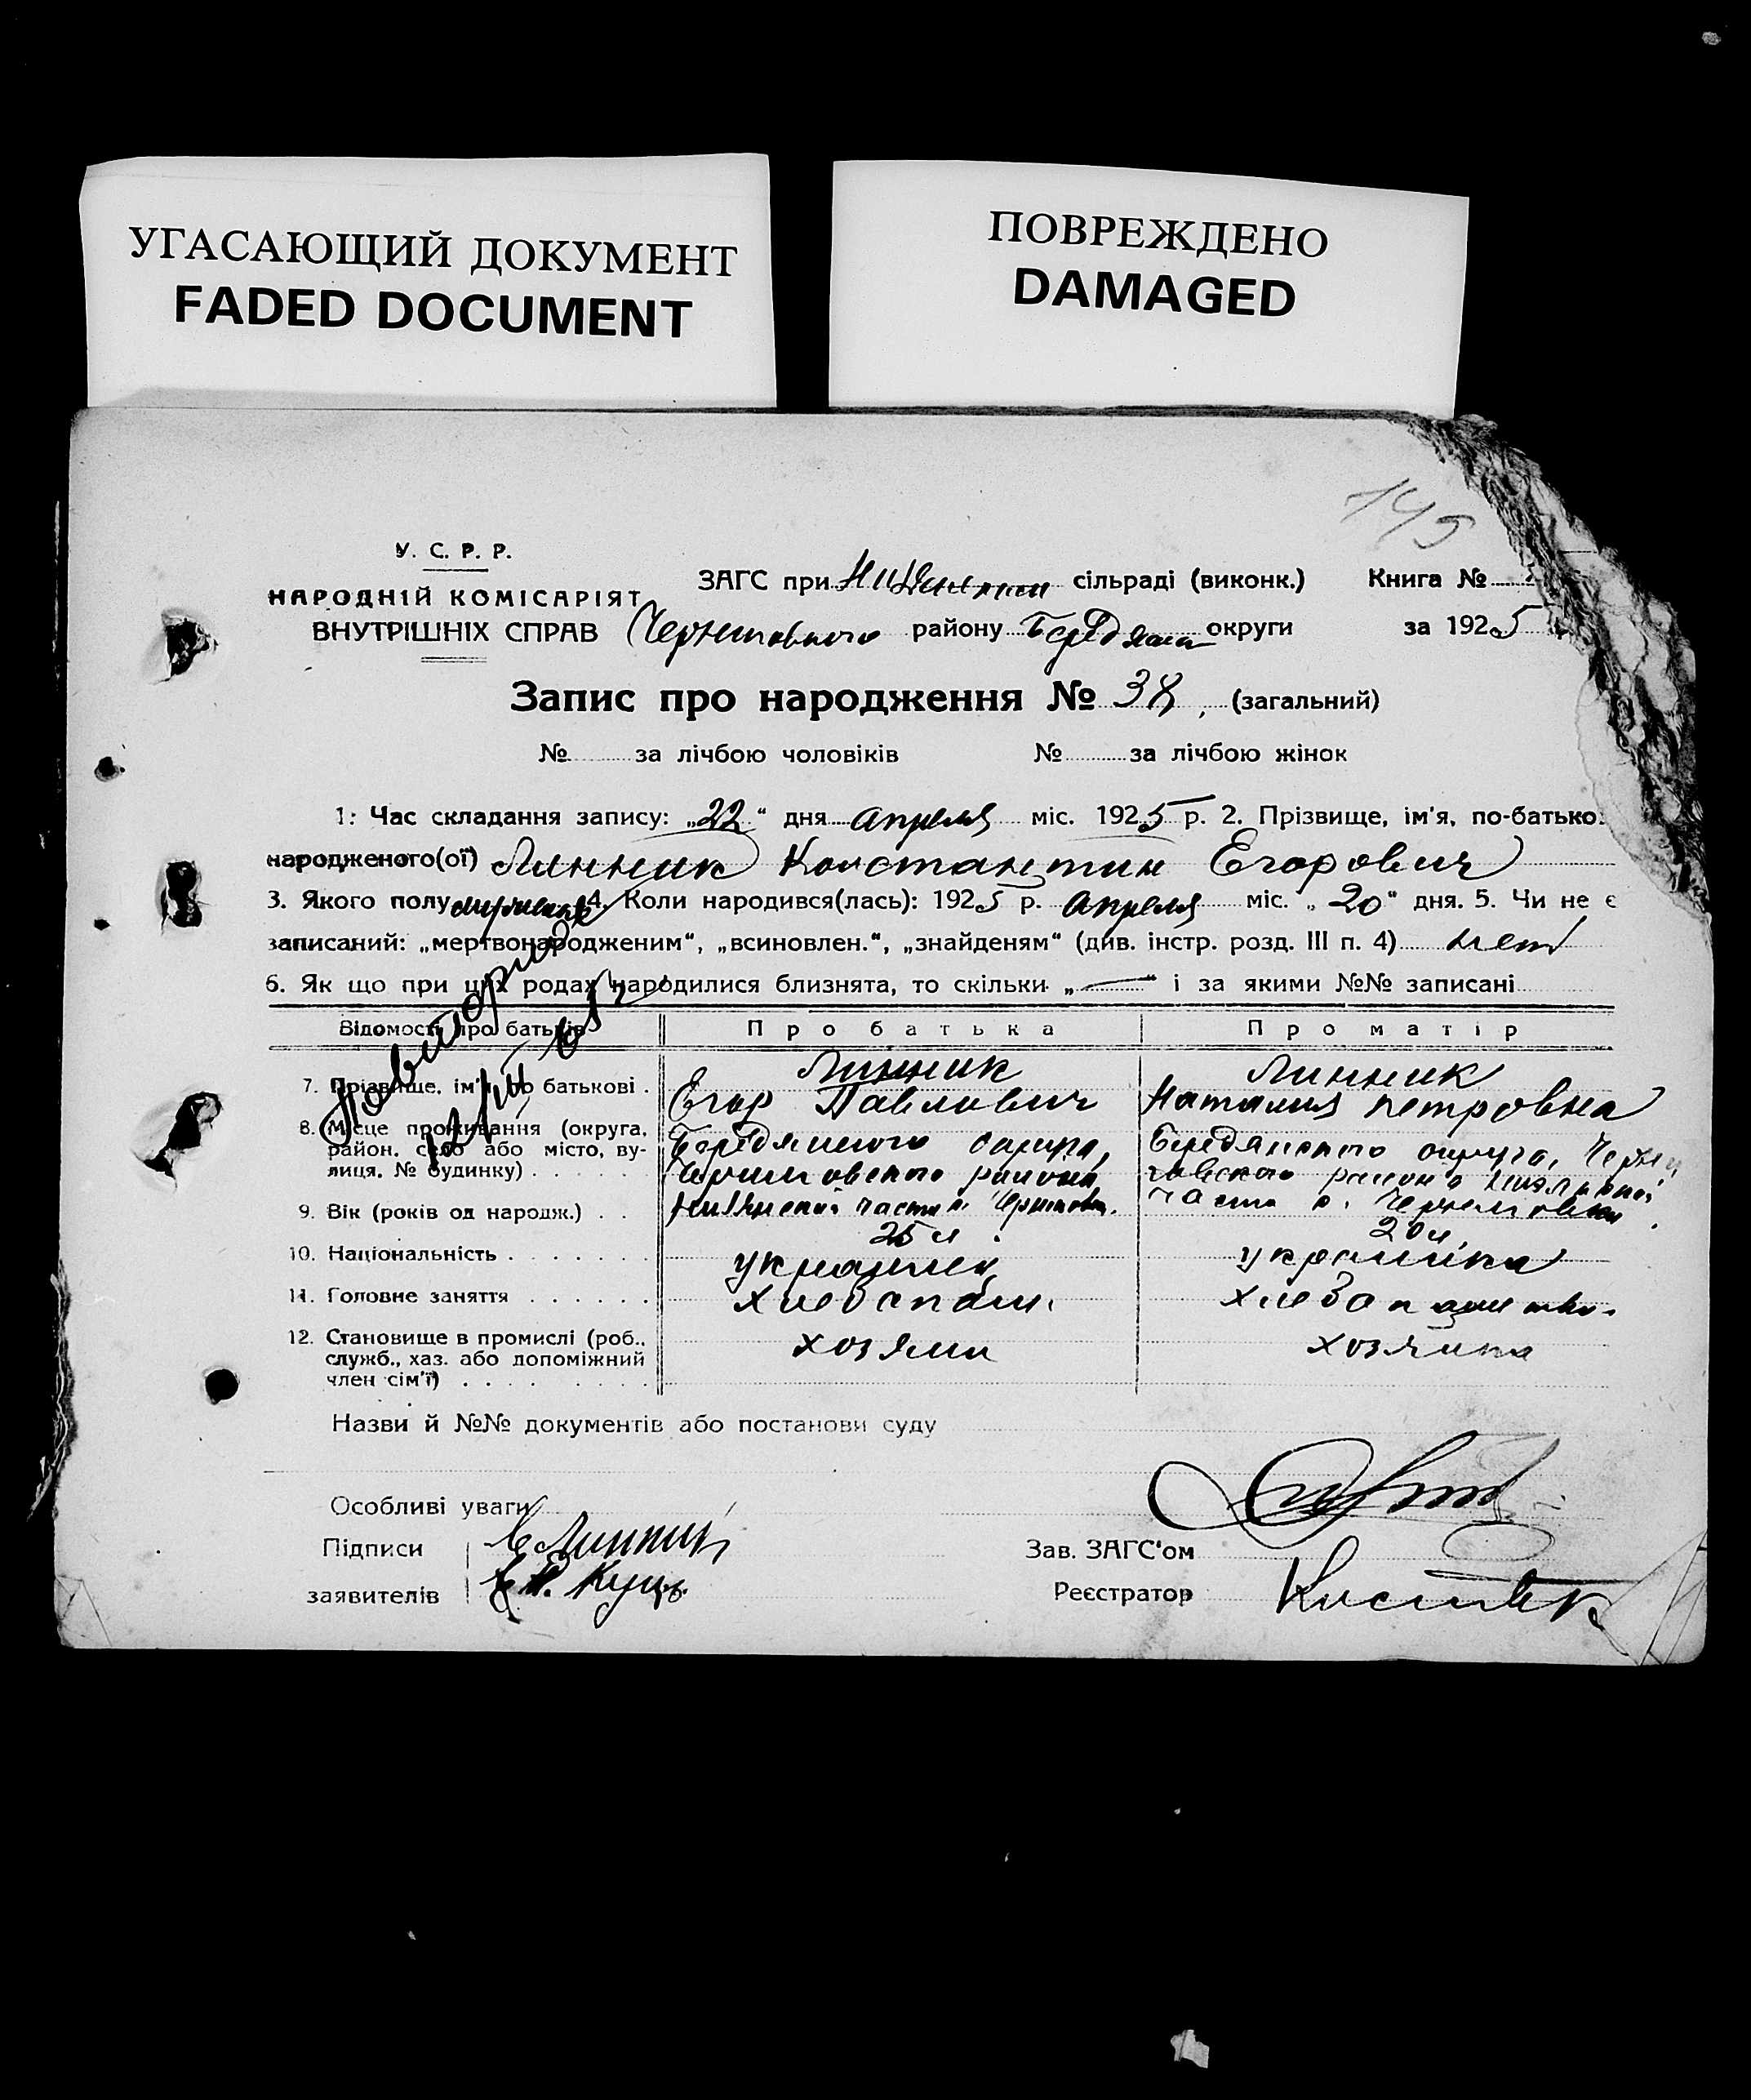 УГАСАЮЩИЙ ДОКУМЕНТ
FADED DOCUMENT
ПОВРЕЖДЕНО
DAMAGED
145
У. С. Р. Р.
НАРОДНІЙ КОМІСАРІЯТ
ВНУТРІШНІХ СПРАВ
ЗАГС при сільраді (виконк.) Книга №
району Бердянск округи за 1925
Запис про народження № 38, (загальний)
№ за лічбою чоловіків № за лічбою жінок
1: Час складання запису: „22“ дня апреля міс. 1925 р. 2. Прізвище, ім'я, по-батько.
народженого(ої) Линник Константин Егорович
3. Якого полу 4. Коли народився(лась): 1925 р. апреля міс. „20“ дня. 5. Чи не є
записаний: „мертвонародженим“, „всиновлен.“, „знайденям“ (див. інстр. розд. III п. 4) нет
6. Як що при цих родах народилися близнята, то скільки „—“ і за якими №№ записані
Відомості про батьків Про батька Про матір
7. Прізвище, ім'я, по батькові . Линник Егор Павлович Линник Наталия Петровна
8. Місце проживання (округа, Бердянского округа, Бердянского округа, Черни
район, село або місто, ву- Черниговского района говского района
лиця, № будинку) . . . . . части с. Черниговки. части с. Черниговки.
9. Вік (років од народж.) . . 25 л. 20 л.
10. Національність . . . . . . . украинец украинка
11. Головне заняття . . . . . . хлебопаш. хлебопашество.
12. Становище в промислі (роб., хозяин хозяйка
служб., хаз. або допоміжний
член сім'ї) . . . . . . . .
Назви й №№ документів або постанови суду
Особливі уваги
Підписи Е Линник
заявителів Куць
Зав. ЗАГС'ом
Реєстратор